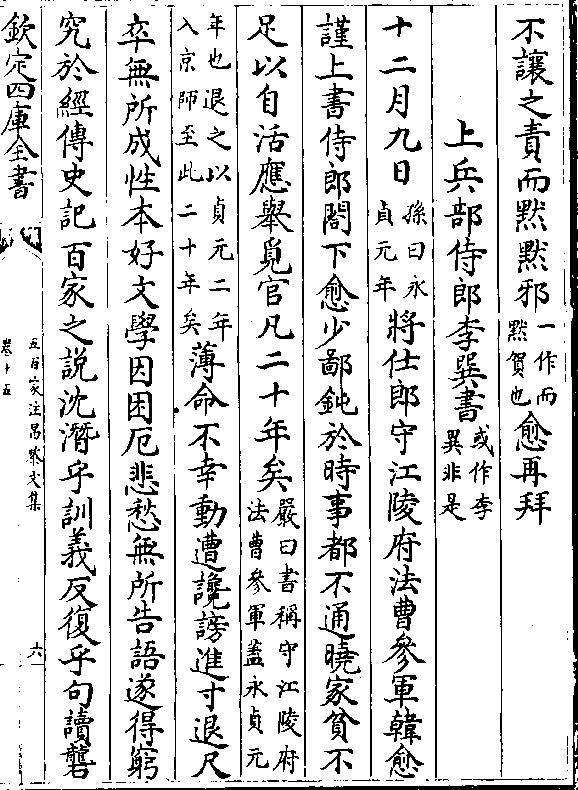 不讓之責而默默邪一作而默賀也愈再拜
上兵部侍郎李巽書或作李異非是
十二月九日孫曰永貞元年將仕郎守江陵府法曹參軍韓愈
謹上書侍郎閤下愈少鄙鈍於時事都不通曉家貧不
足以自活應舉覓官凡二十年矣嚴曰書稱守江陵府法曹參軍蓋永貞元
年也退之以貞元二年入京師至此二十年矣薄命不幸動遭讒謗進寸退尺
卒無所成性本好文學因困厄悲愁無所告語遂得窮
究於經傳史記百家之說沈潛乎訓義反復乎句讀礱
欽定四庫全書
五百家注昌黎文集
卷十五
六